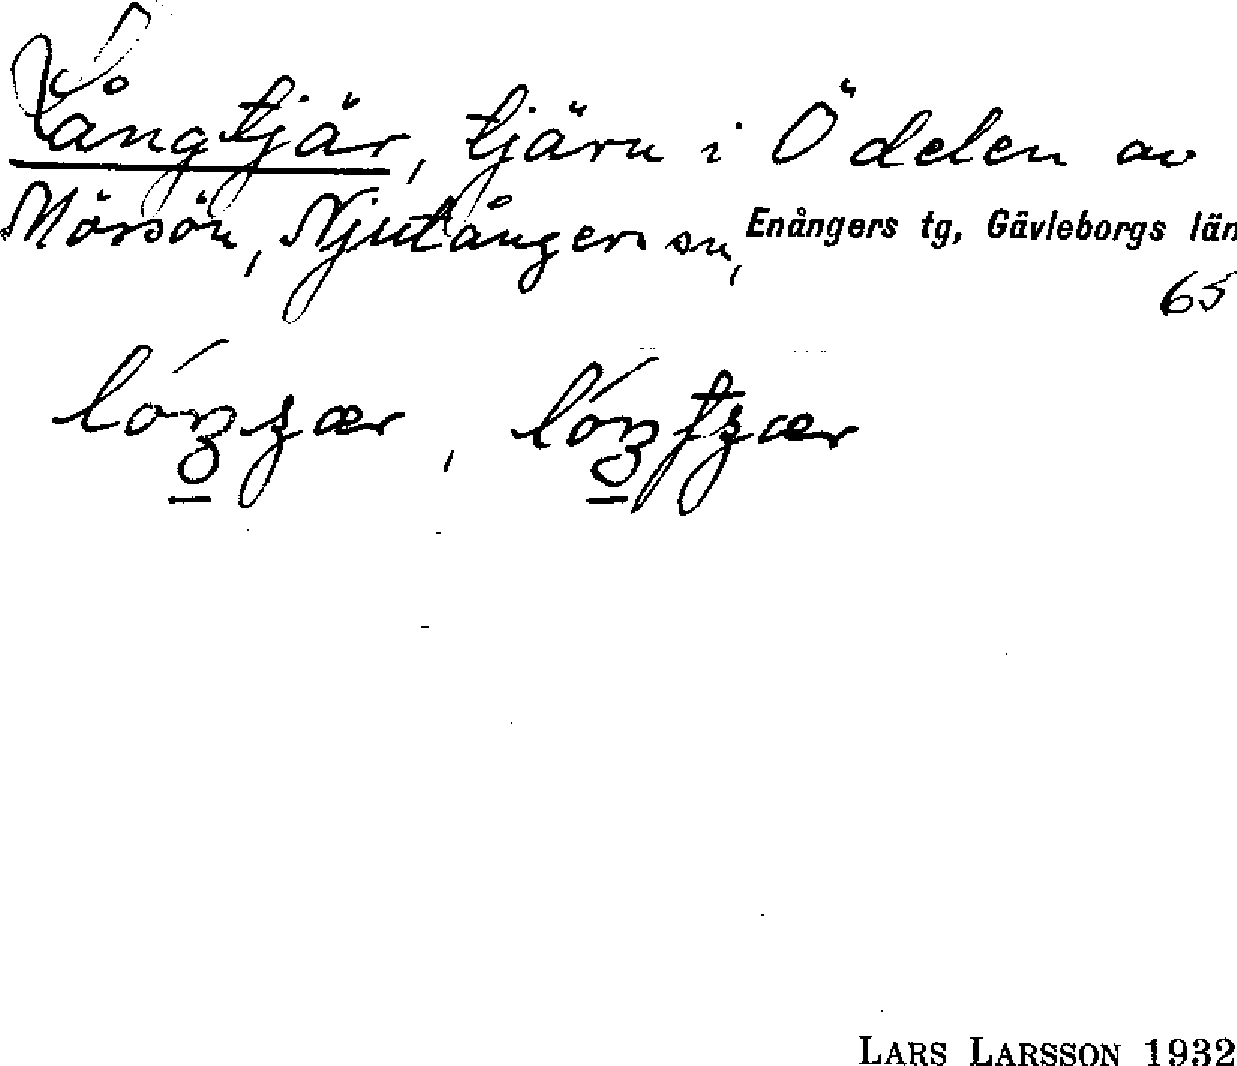 Långtjär, tjärn i Ö delen av
Mössön, Njutångers sn, Enångers tg, Gävleborgs län
65
LARS LARSSON 1932